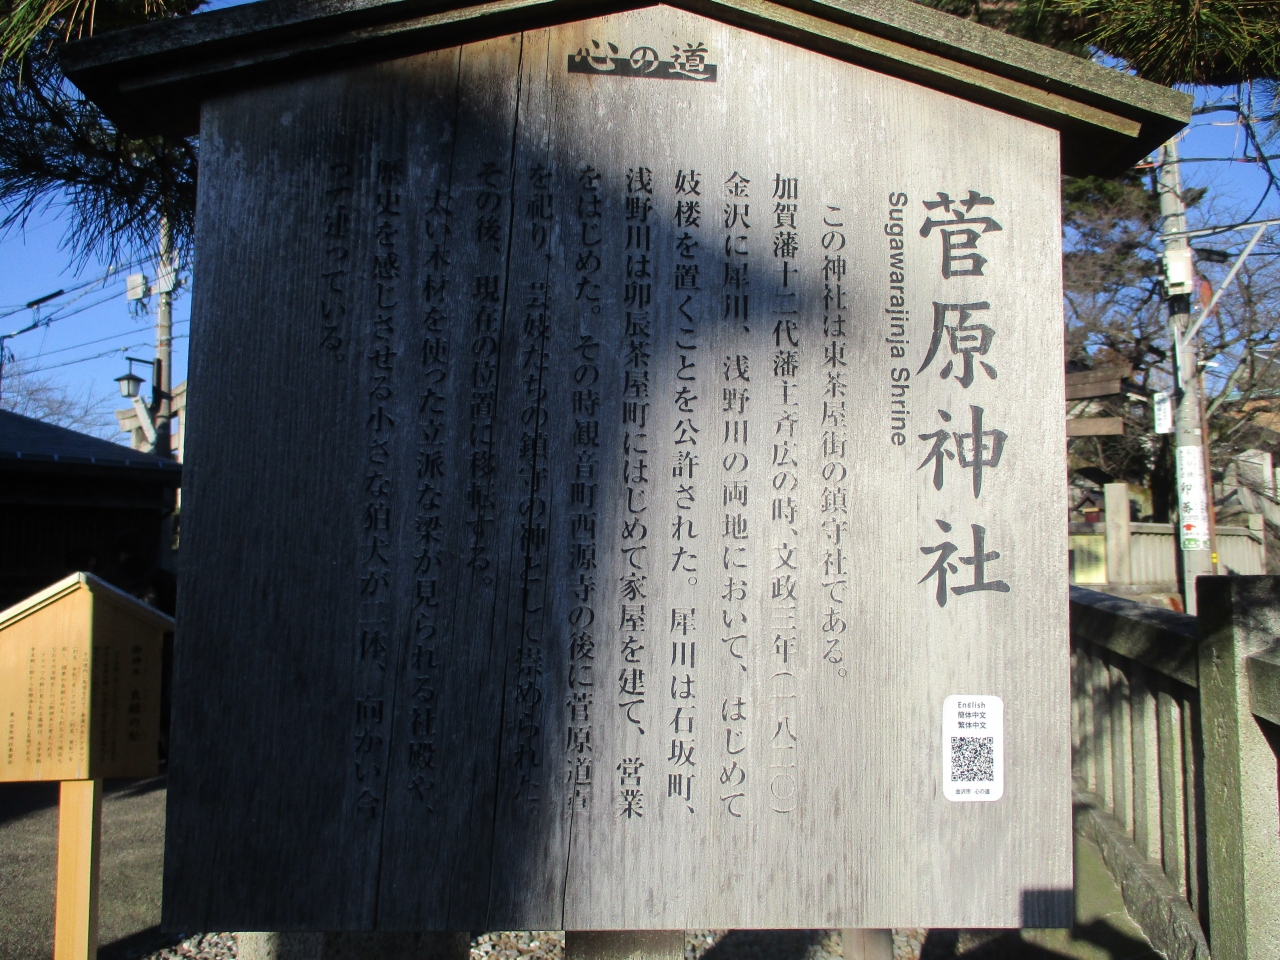 心の道
菅原神社
Sugawarajinja Shrine
この神社は東茶屋街の鎮守社である。
加賀藩十二代藩主斉広の時、文政三年(一八二〇)
金沢に犀川、浅野川の両地において、はじめて
妓楼を置くことを公許された。犀川は石坂町、
浅野川は卯辰茶屋町にはじめて家屋を建て、営業
をはじめた。その時観音町西源寺の後に菅原道真
を祀り、芸妓たちの鎮守の神として崇められた。
その後、現在の位置に移転する。
太い木材を使った立派な梁が見られる社殿や、
歴史を感じさせる小さな狛犬が二体、向かい合
って建っている。
English
簡体中文
繁体中文
金沢市 心の道